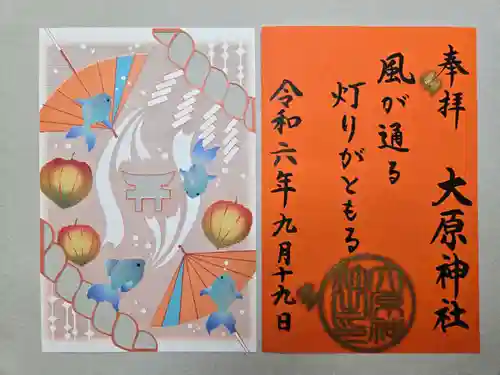 奉拝
大原神社
風が通る
灯りがともる
令和六年九月十九日